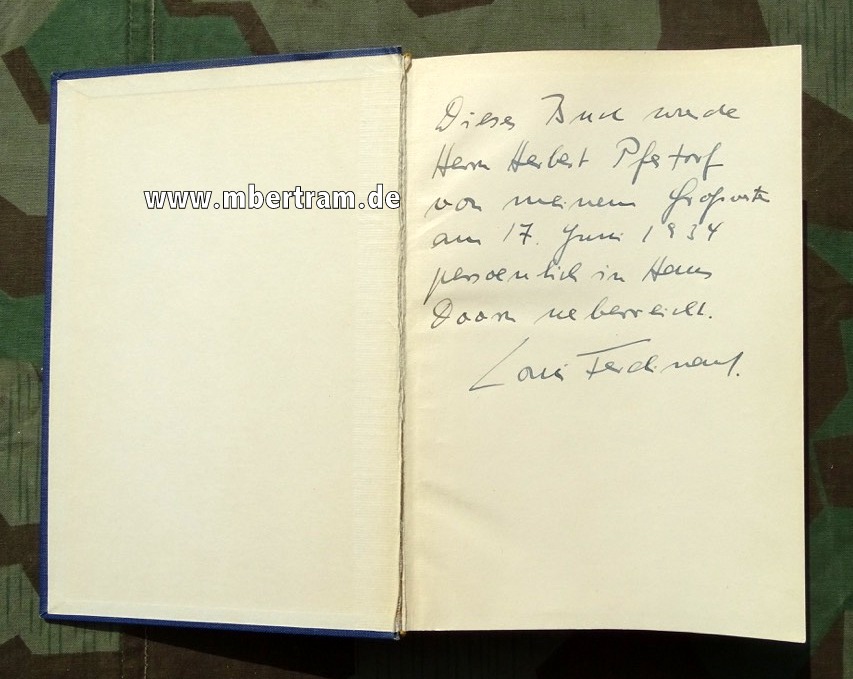 Dieses Buch wurde
Herrn Herbert Pfestorf
www.mbertram.de
von meinem Großvater
am 17. Juni 1934
persoenlich in Haus
Doorn ueberreicht.
Louis Ferdinand.